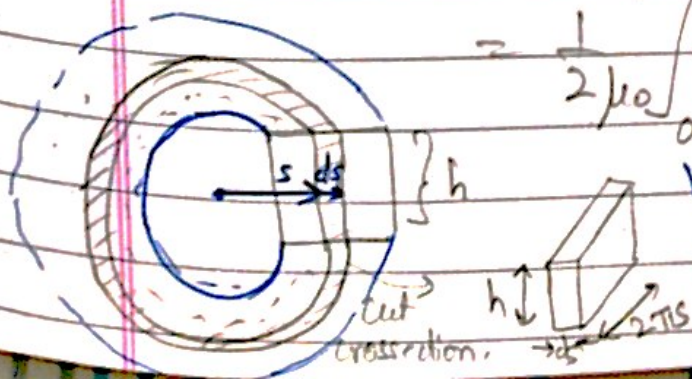 = 1/2μ₀ ∫₀
s ds
} h
cut
crossection.
h
2πs
ds